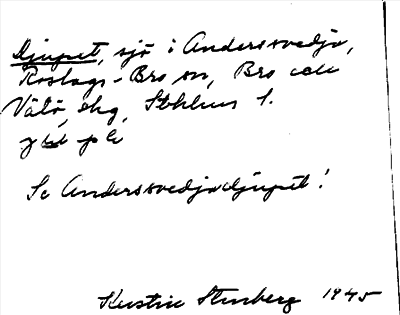 Djupet, sjö i Andersvedja,
Roslags-Bro sn, Bro och
Vätö skg, Sthlms l.
Se Andersvedjadjupet!
Kerstin Stenberg 1945